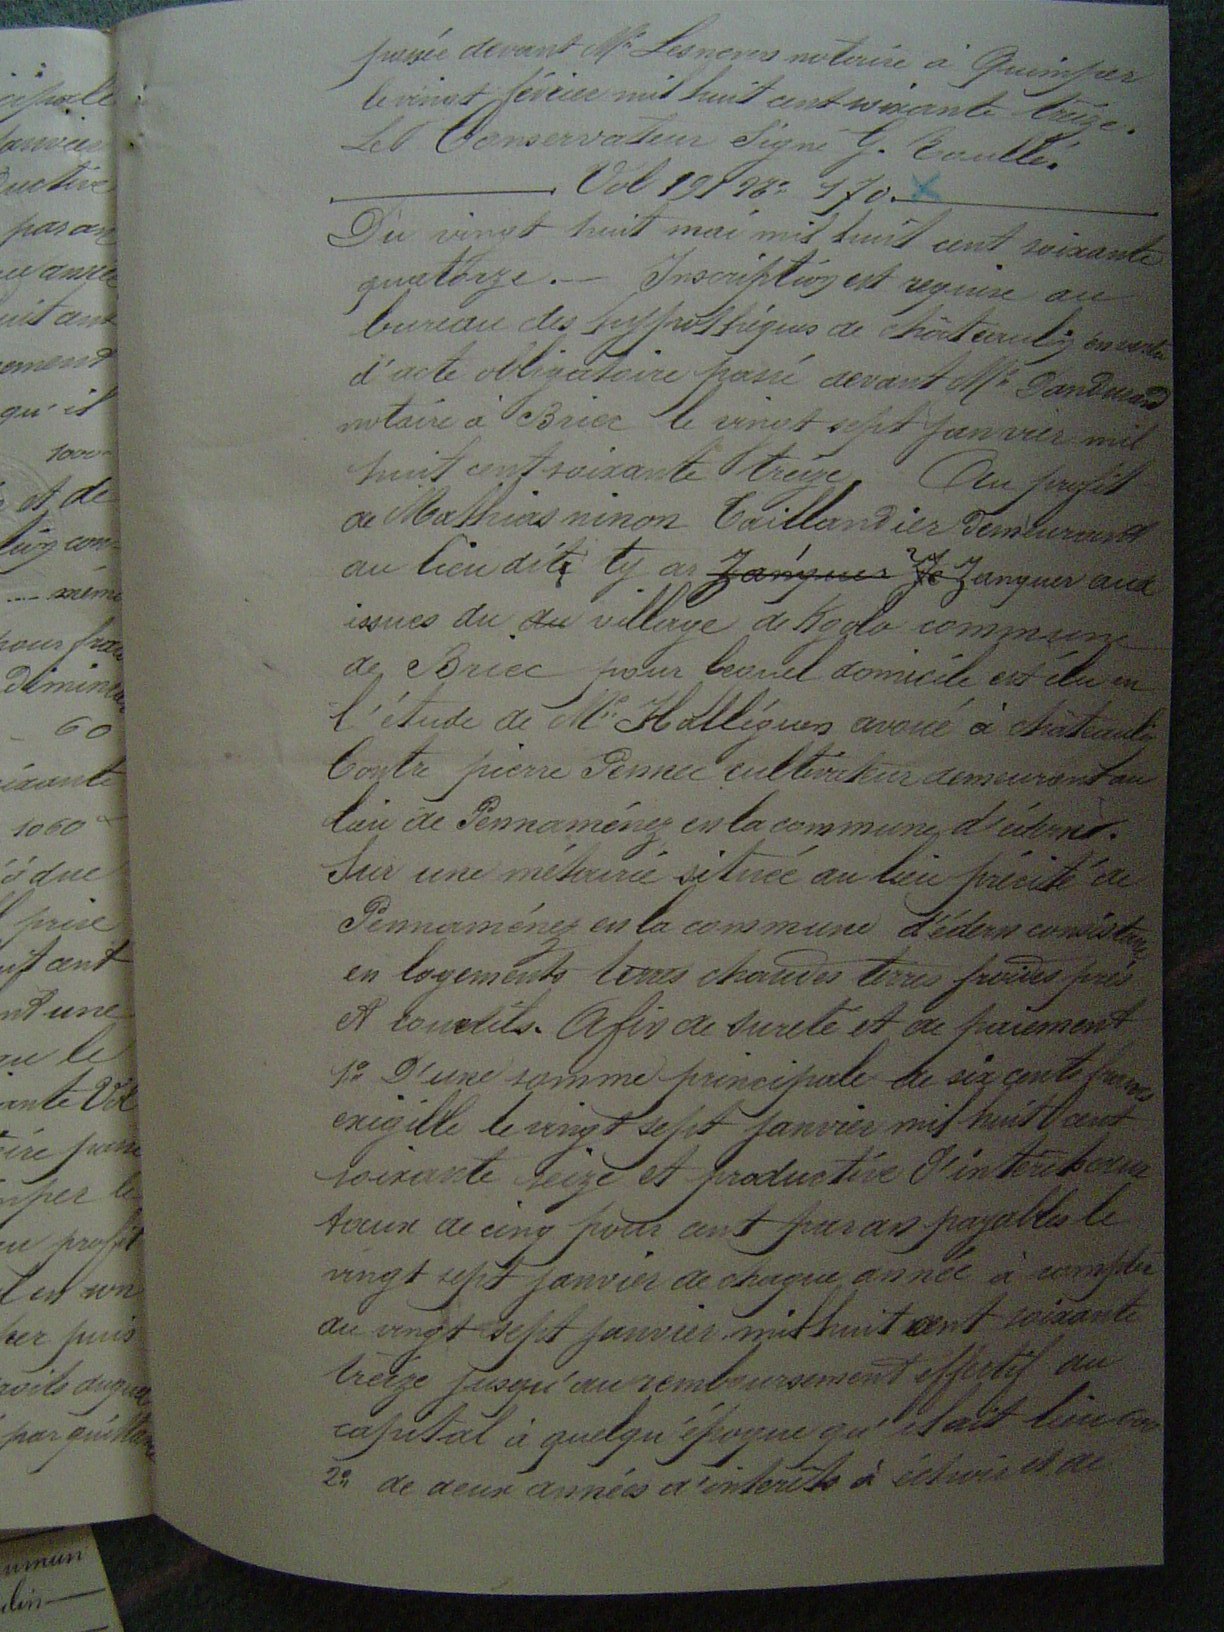 passée devant Me Lesneven notaire à Quimper
le vingt février mil huit cent soixante treize.
Le Conservateur Signé G. Toullé.
Vol 191 No 170.
Du vingt huit mai mil huit cent soixante
quatorze. — Inscription est requise au
bureau des hypothèques de châteaulin en vertu
d'acte obligatoire passé devant Me Dandurand
notaire à Briec le vingt sept janvier mil
huit cent soixante treize. Au profit
de Mathias ninon Taillandier demeurant
au lieu dit ty ar Zanguer aux
issues du du village de Kgolo commune
de Briec pour lequel domicile est élu en
l'étude de Me Halléguen avoué à châteaulin
Contre pierre Pennec cultivateur demeurant au
lieu de Pennaménez en la commune d'édern.
Sur une métairie située au lieu précité de
Pennaménez en la commune d'édern consistant
en logements terres chaudes terres froides prés
et courtils. Afin de sureté et de paiement
1o D'une somme principale de six cents francs
exigible le vingt sept janvier mil huit cent
soixante seize et productive d'intérêts au
taux de cinq pour cent par an payables le
vingt sept janvier de chaque année à compter
du vingt sept janvier mil huit cent soixante
treize jusqu'au remboursement effectif du
capital à quelqu'époque qu'il ait lieu 600
2o de deux années d'intérêts à échoir et de
cipale
janvier
ductive
par an
ue année
uit cent
qu'il
1000
et de
pour frais
60
ixante
1060
prise
uit cent
nt une
ue le
ante Vol
mper le
u profit